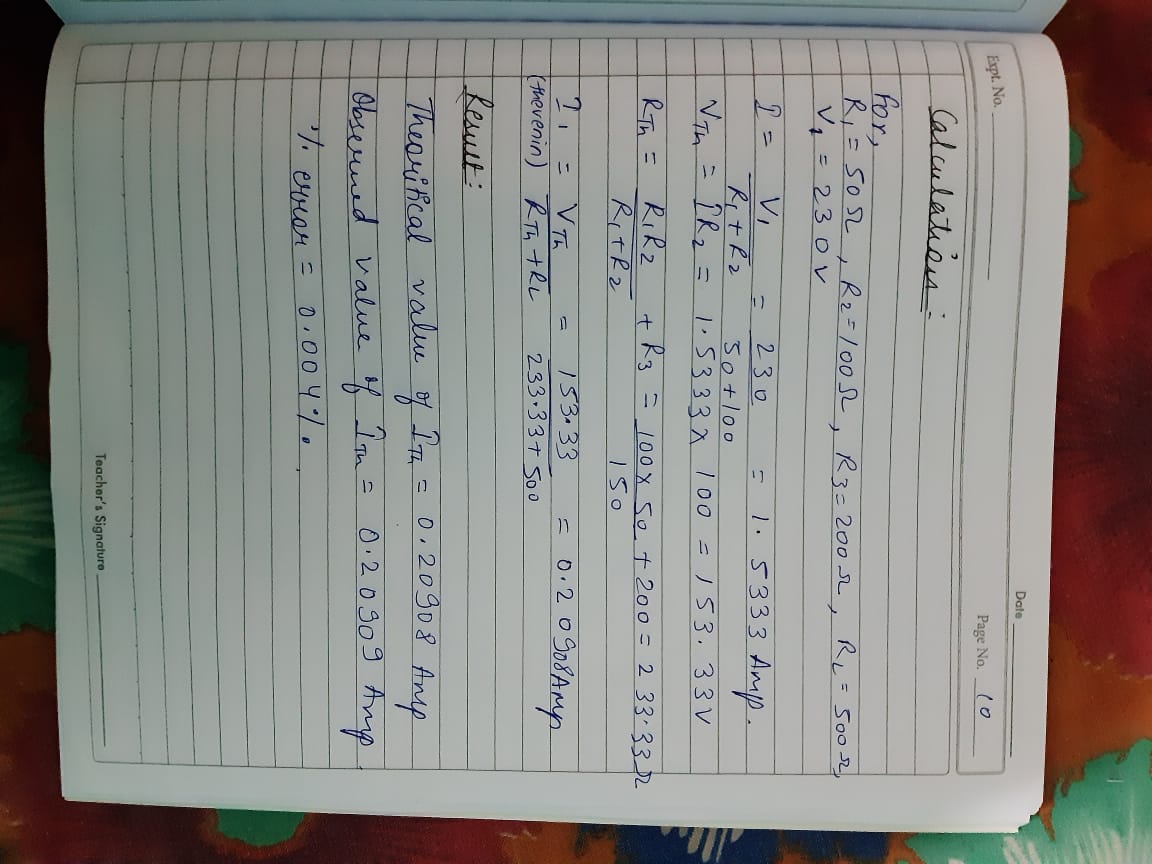 Date
Expt. No.
Page No. 10
Calculation:
For,
R₁ = 50Ω, R2=100Ω, R3=200Ω, RL = 500Ω,
V₁ = 230V
I = V₁/(R₁+R2) = 230/(50+100) = 1.5333 Amp.
VTh = IR2 = 1.5333 x 100 = 153.33V
RTh = R₁R2/(R₁+R2) + R3 = 100x50/150 + 200 = 233.33Ω
I₁ (thevenin) = VTh/(RTh+RL) = 153.33/(233.33+500) = 0.20908Amp
Result:
Theoritical value of ITh = 0.20908 Amp
Observed value of ITh = 0.20909 Amp
% error = 0.004%.
Teacher's Signature